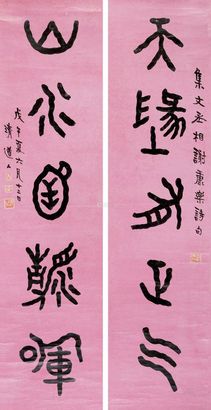 集文丞相謝康樂詩句
天地有正气
山水含清暉
戊午夏六月十二日
清道人